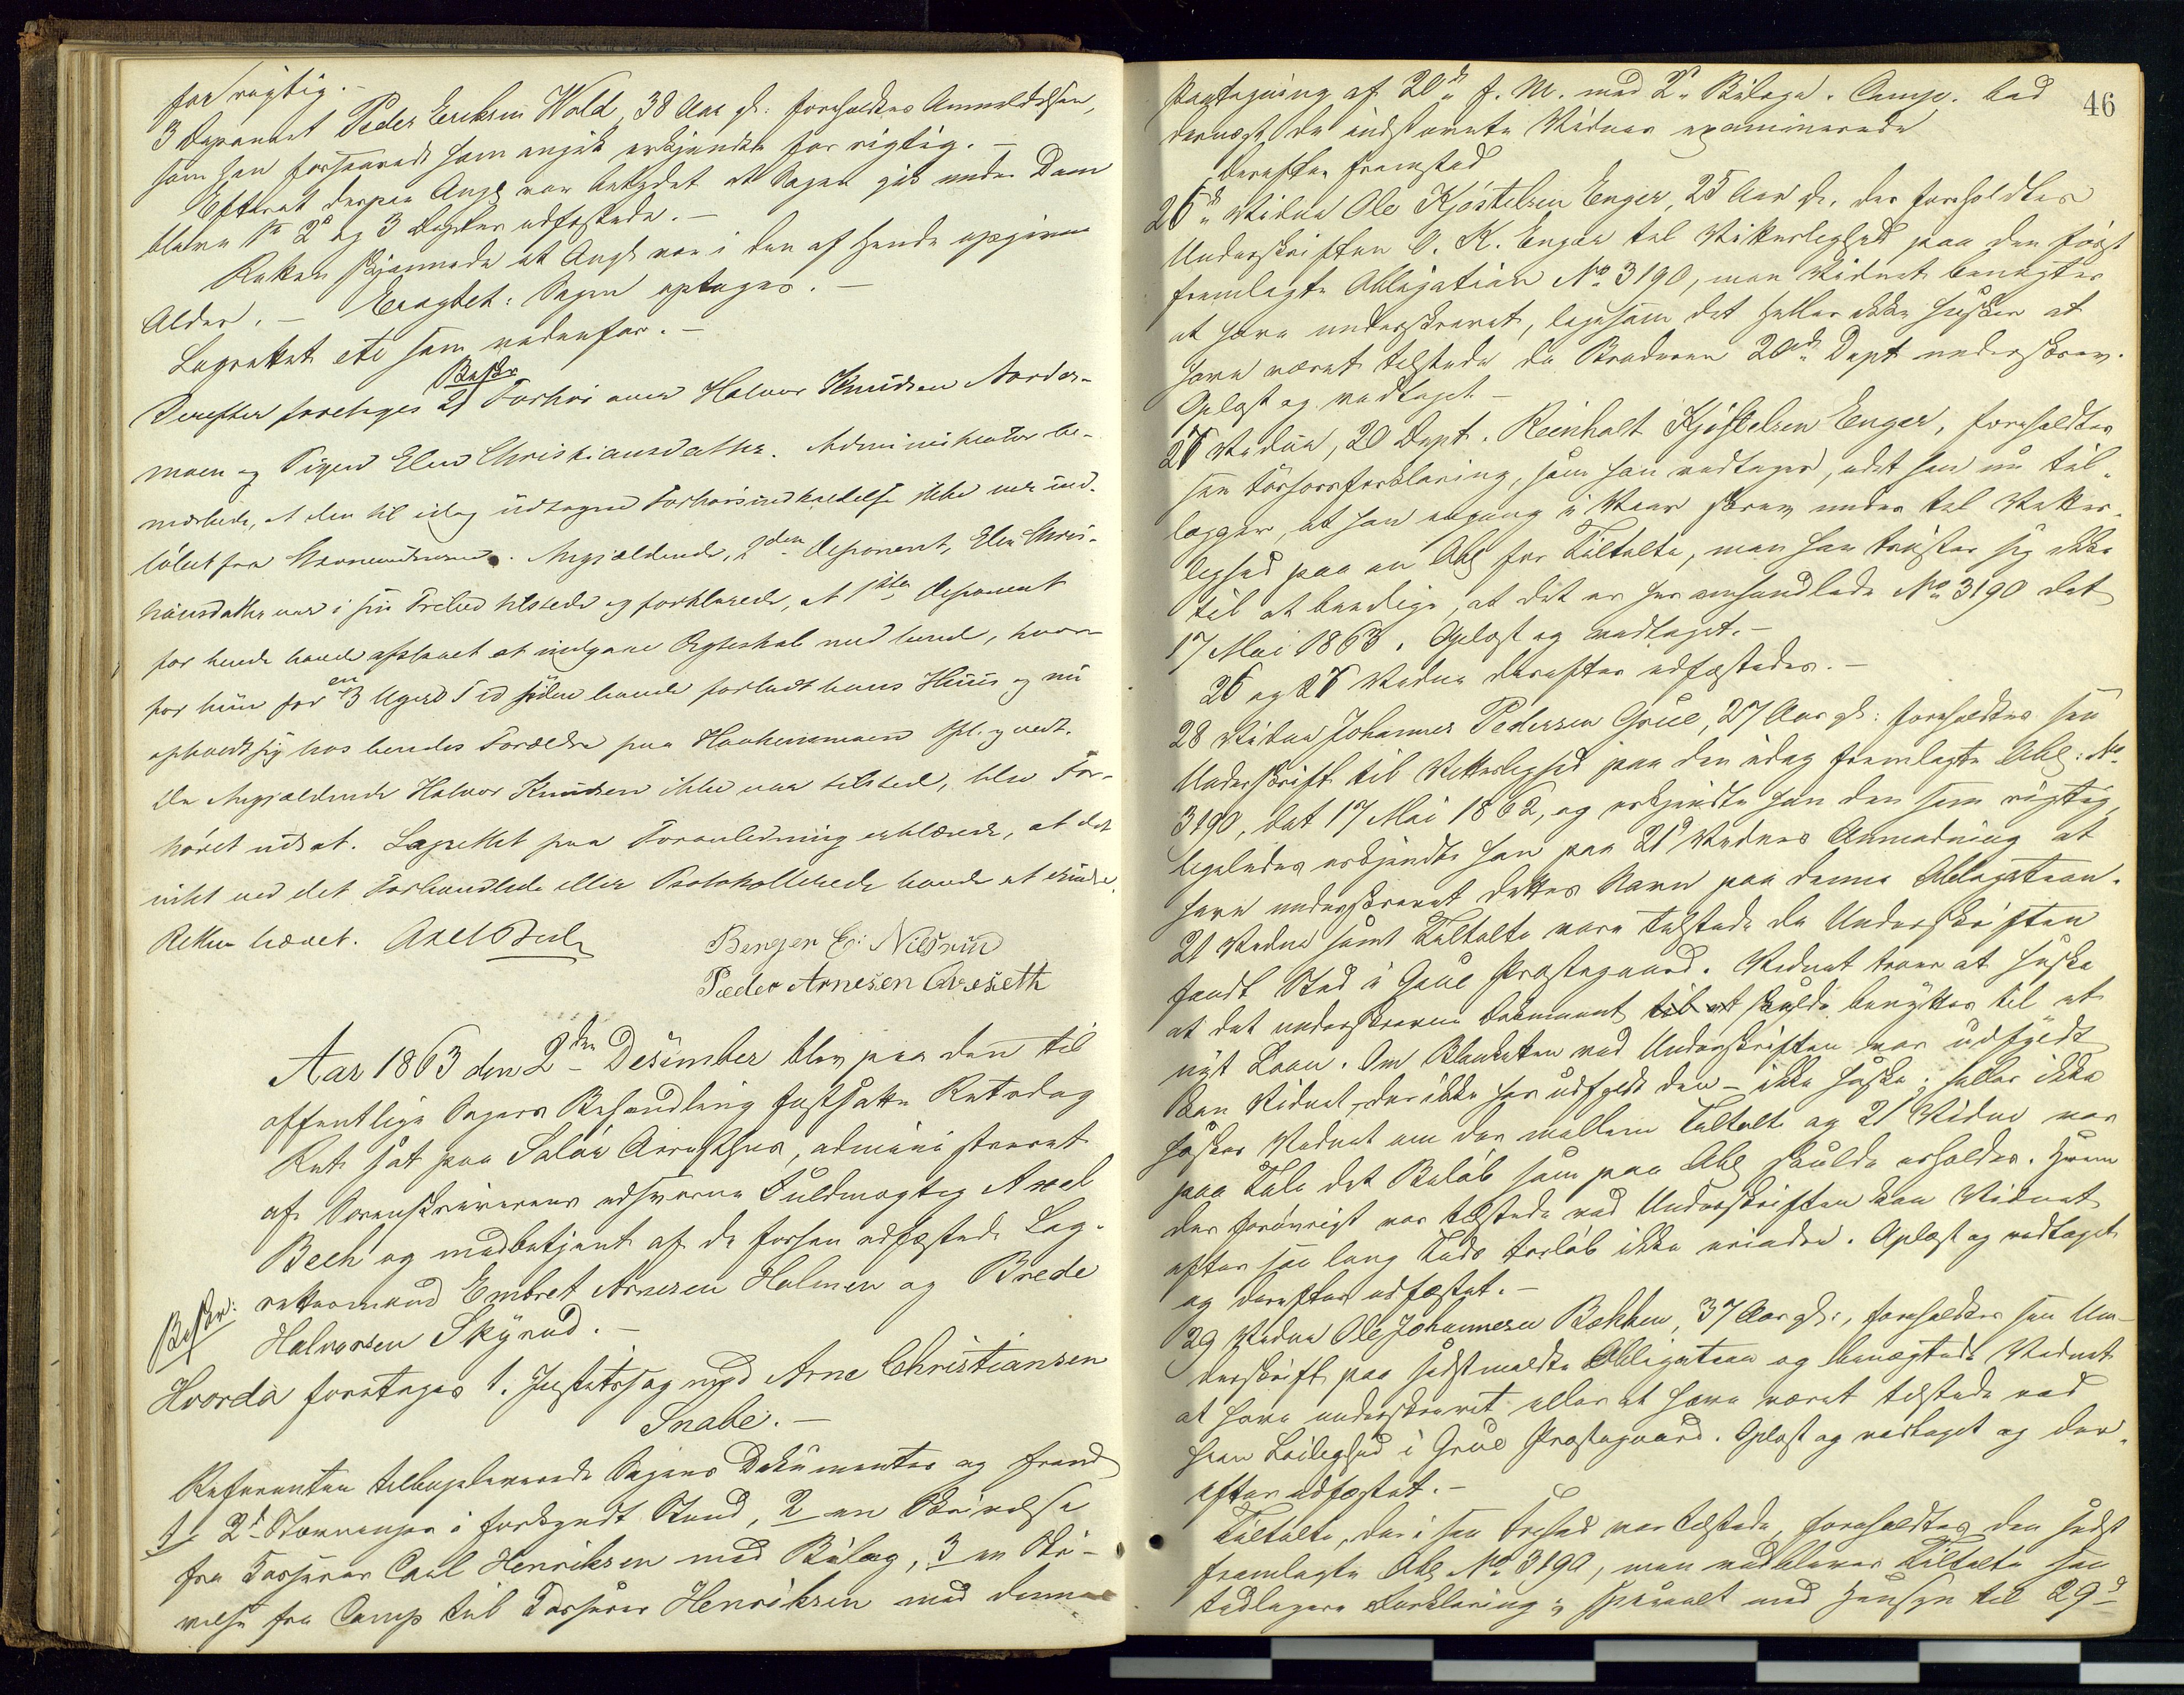 for rigtig. -
3 Deponent Peder Eriksen Wold, 38 Aar gl: foreholdtes Anmeldelsen,
som han forsaavidt ham angik erkjendte for rigtig. -
Efterat derpaa Angj var betydet at Sagen gik under Dom
bleve 1ste 2d og 3 Depter edfæstede. -
Retten skjønnede at Angj var i den af hende opgivne
Alder. - Eragtet: Sagen optages. -
Lagrettet etc som nedenfor. -
Beskr
Derefter foretoges 2) Forhør over Halvor Knudsen Norder-
moen og Pigen Elen Christiansdatter. Administrator be-
mærkede, at den til idag udtagne Forhørsindkaldelse ikke var ind-
löbet fra Stævnevidnerne. Angjældende, 2den Deponent, Elen Chris-
tiansdatter var i sin Frihed tilstede og forklarede, at 1ste Deponent
for hende havde afslaaet at indgaae Ægteskab med hende, hvor-
for hun for en 3 Ugers Tid siden havde forladt hans Huus og nu
opholdt sig hos hendes Forældre paa Haakensmoen Opl. og vedt.
Da Angjældende Halvor Knudsen ikke var tilstede, blev For-
höret udsat. Lagrettet paa Foranledning erklærede, at det
intet ved det Forhandlede eller Protokollerede havde at erindre.
Retten hævet. Axel Bech
Berger E: Nilsrud
Peder Arnesen Areseth
Aar 1863 den 2den Desember blev paa den til
offentlige Sagers Behandling fastsatte Retsdag
Ret sat paa Solør Arresthus, administreret
af Sorenskriverens edsvorne Fuldmægtig Axel
Bech og medbetjent af de forhen edfæstede Lag-
rettesmænd Embret Arnesen Holmen og Brede
Beskr:
Halvorsen Skyrud. -
Hvorda foretoges 1. Justitssag mod Arne Christiansen
Snabe. -
Referenten tilbageleverede Sagens Dokumenter og fremL
1/ 2d Stævningen i forkyndt Stand, 2 en Skrivelse
fra Kasserer Carl Henriksen med Bilag, 3 en Skri-
velse fra Comp til Kasserer Henriksen med dennes
46
Paategning af 20d f. M. med 2de Bilage. Comp. bad
dernæst de indstævnte Vidner examinerede
Derefter fremstod
26de Vidne Ole Kjöstelsen Enger, 25 Aar gl, der foreholdtes
Underskriften O. K. Enger til Vitterlighed paa den först
fremlagte Obligation No 3190, men Vidnet benægter
at have underskrevet, ligesom det heller ikke husker at
have været tilstede da Broderen 20de Dept underskrev.
Oplæst og vedtaget -
27 Vidne, 20 Dept. Reinholt Kjöstelsen Enger, foreholdtes
sin Forhørsforklaring, som han vedtager, idet han nu til-
lægger, at han engang i Vaar skrev under til Vitter-
lighed paa en Obl for Tiltalte, men han trøster sig ikke
til at beedige, at det er her omhandlede No 3190 dat
17 Mai 1863. Oplæst og vedtaget. -
26 og 27 Vidne derefter edfæstedes. -
28 Vidne Johannes Pedersen Grue, 27 Aar gl: foreholdtes sin
Underskrift til Vitterlighed paa den idag fremlagte Obl: No
3190, dat 17 Mai 1862, og erkjendte han den som rigtig,
ligeledes erkjendte han paa 21d Vidnes Anmodning at
have underskrevet dettes Navn paa denne Obligation.
21 Vidne samt Tiltalte vare tilstede da Underskriften
fandt Sted i Grue Præstegaard. Vidnet troer at huske
at det underskrevne Document til at skulde benyttes til et
nyt Laan. Om Blanketten ved Underskriften var udfyldt
kan Vidnet, der ikke har udfyldt den - ikke huske; heller ikke
husker Vidnet om der mellem Tiltalte og 21 Vidne var
paa Tale det Beløb som paa Obl skulde erholdes. Hvem
der forövrigt var tilstede ved Underskriften kan Vidnet
efter saa lang Tids Forløb ikke erindre. Oplæst og vedtaget
og derefter edfæstet. -
29 Vidne Ole Johannesen Bokken, 37 Aar gl:, foreholdtes sin Un-
derskrift paa sidstmeldte Obligation og benægtede Vidnet
at have underskrevet eller at have været tilstede ved
slig Leilighed i Grue Præstegaard. Oplæst og vedtaget og der-
efter edfæstet. -
Tiltalte, der i sin Frihed var tilstede, foreholdtes den sidst
fremlagte Obl No 3190, men vedblev Tiltalte sin
tidligere Forklaring; specielt med Hensyn til 29d